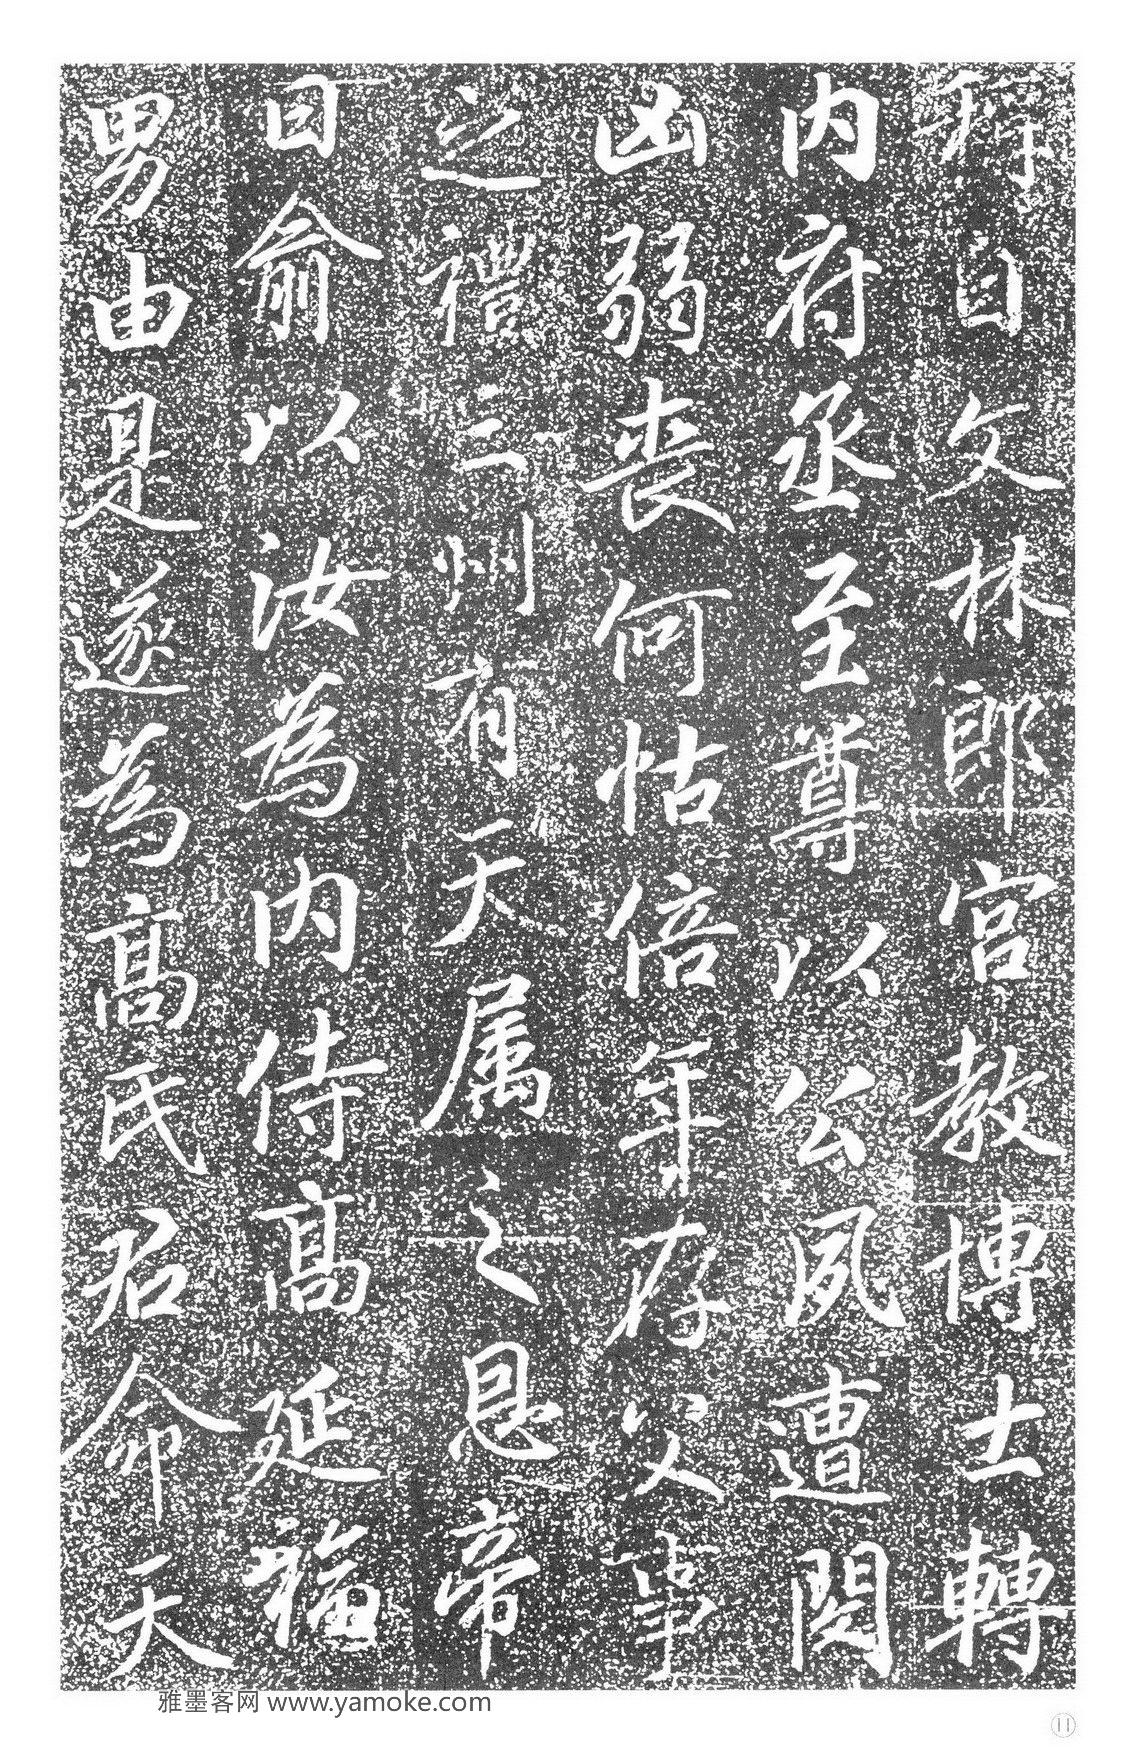 稱自文林郎宫教博士轉
内府丞至尊以公夙遭閔
凶弱丧何怙倍年存父事
之禮三州有天属之恩帝
曰俞以汝為内侍髙延福
男由是遂為髙氏君命天
雅墨客网 www.yamoke.com
11